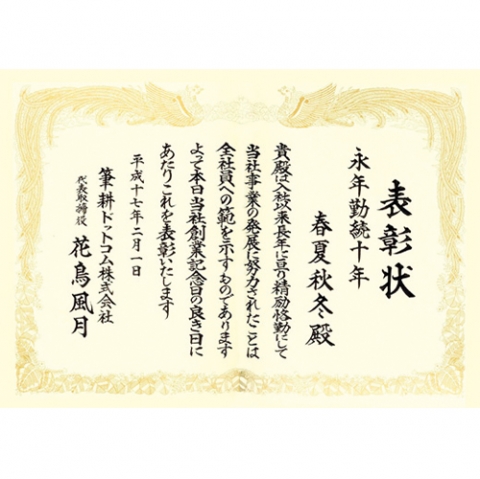 表彰状
永年勤続十年
春夏秋冬殿
貴殿は入社以来長年に亘り精励恪勤にして
当社事業の発展に努力されたことは
全社員への範を示すものであります
よって本日当社創業記念日の良き日に
あたりこれを表彰いたします
平成十七年二月一日
筆耕ドットコム株式会社
代表取締役 花鳥風月